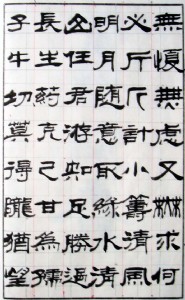 無煩無慮又無求何
必斤斤計小籌清風
明月随意取綠水清
山任君游知足勝過
長生药克己甘為孺
子牛切莫得隴猶望